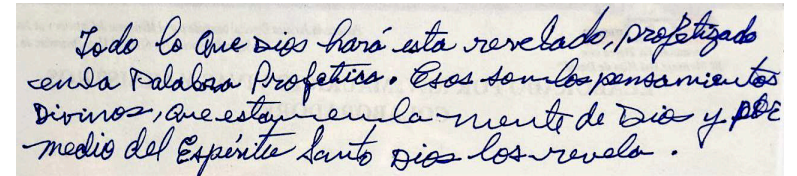 Todo lo que Dios hará esta revelado, profetizado
en la Palabra Profetica. Esos son los pensamientos
Divinos, que estan en la mente de Dios y por
medio del Espíritu Santo Dios los revela.